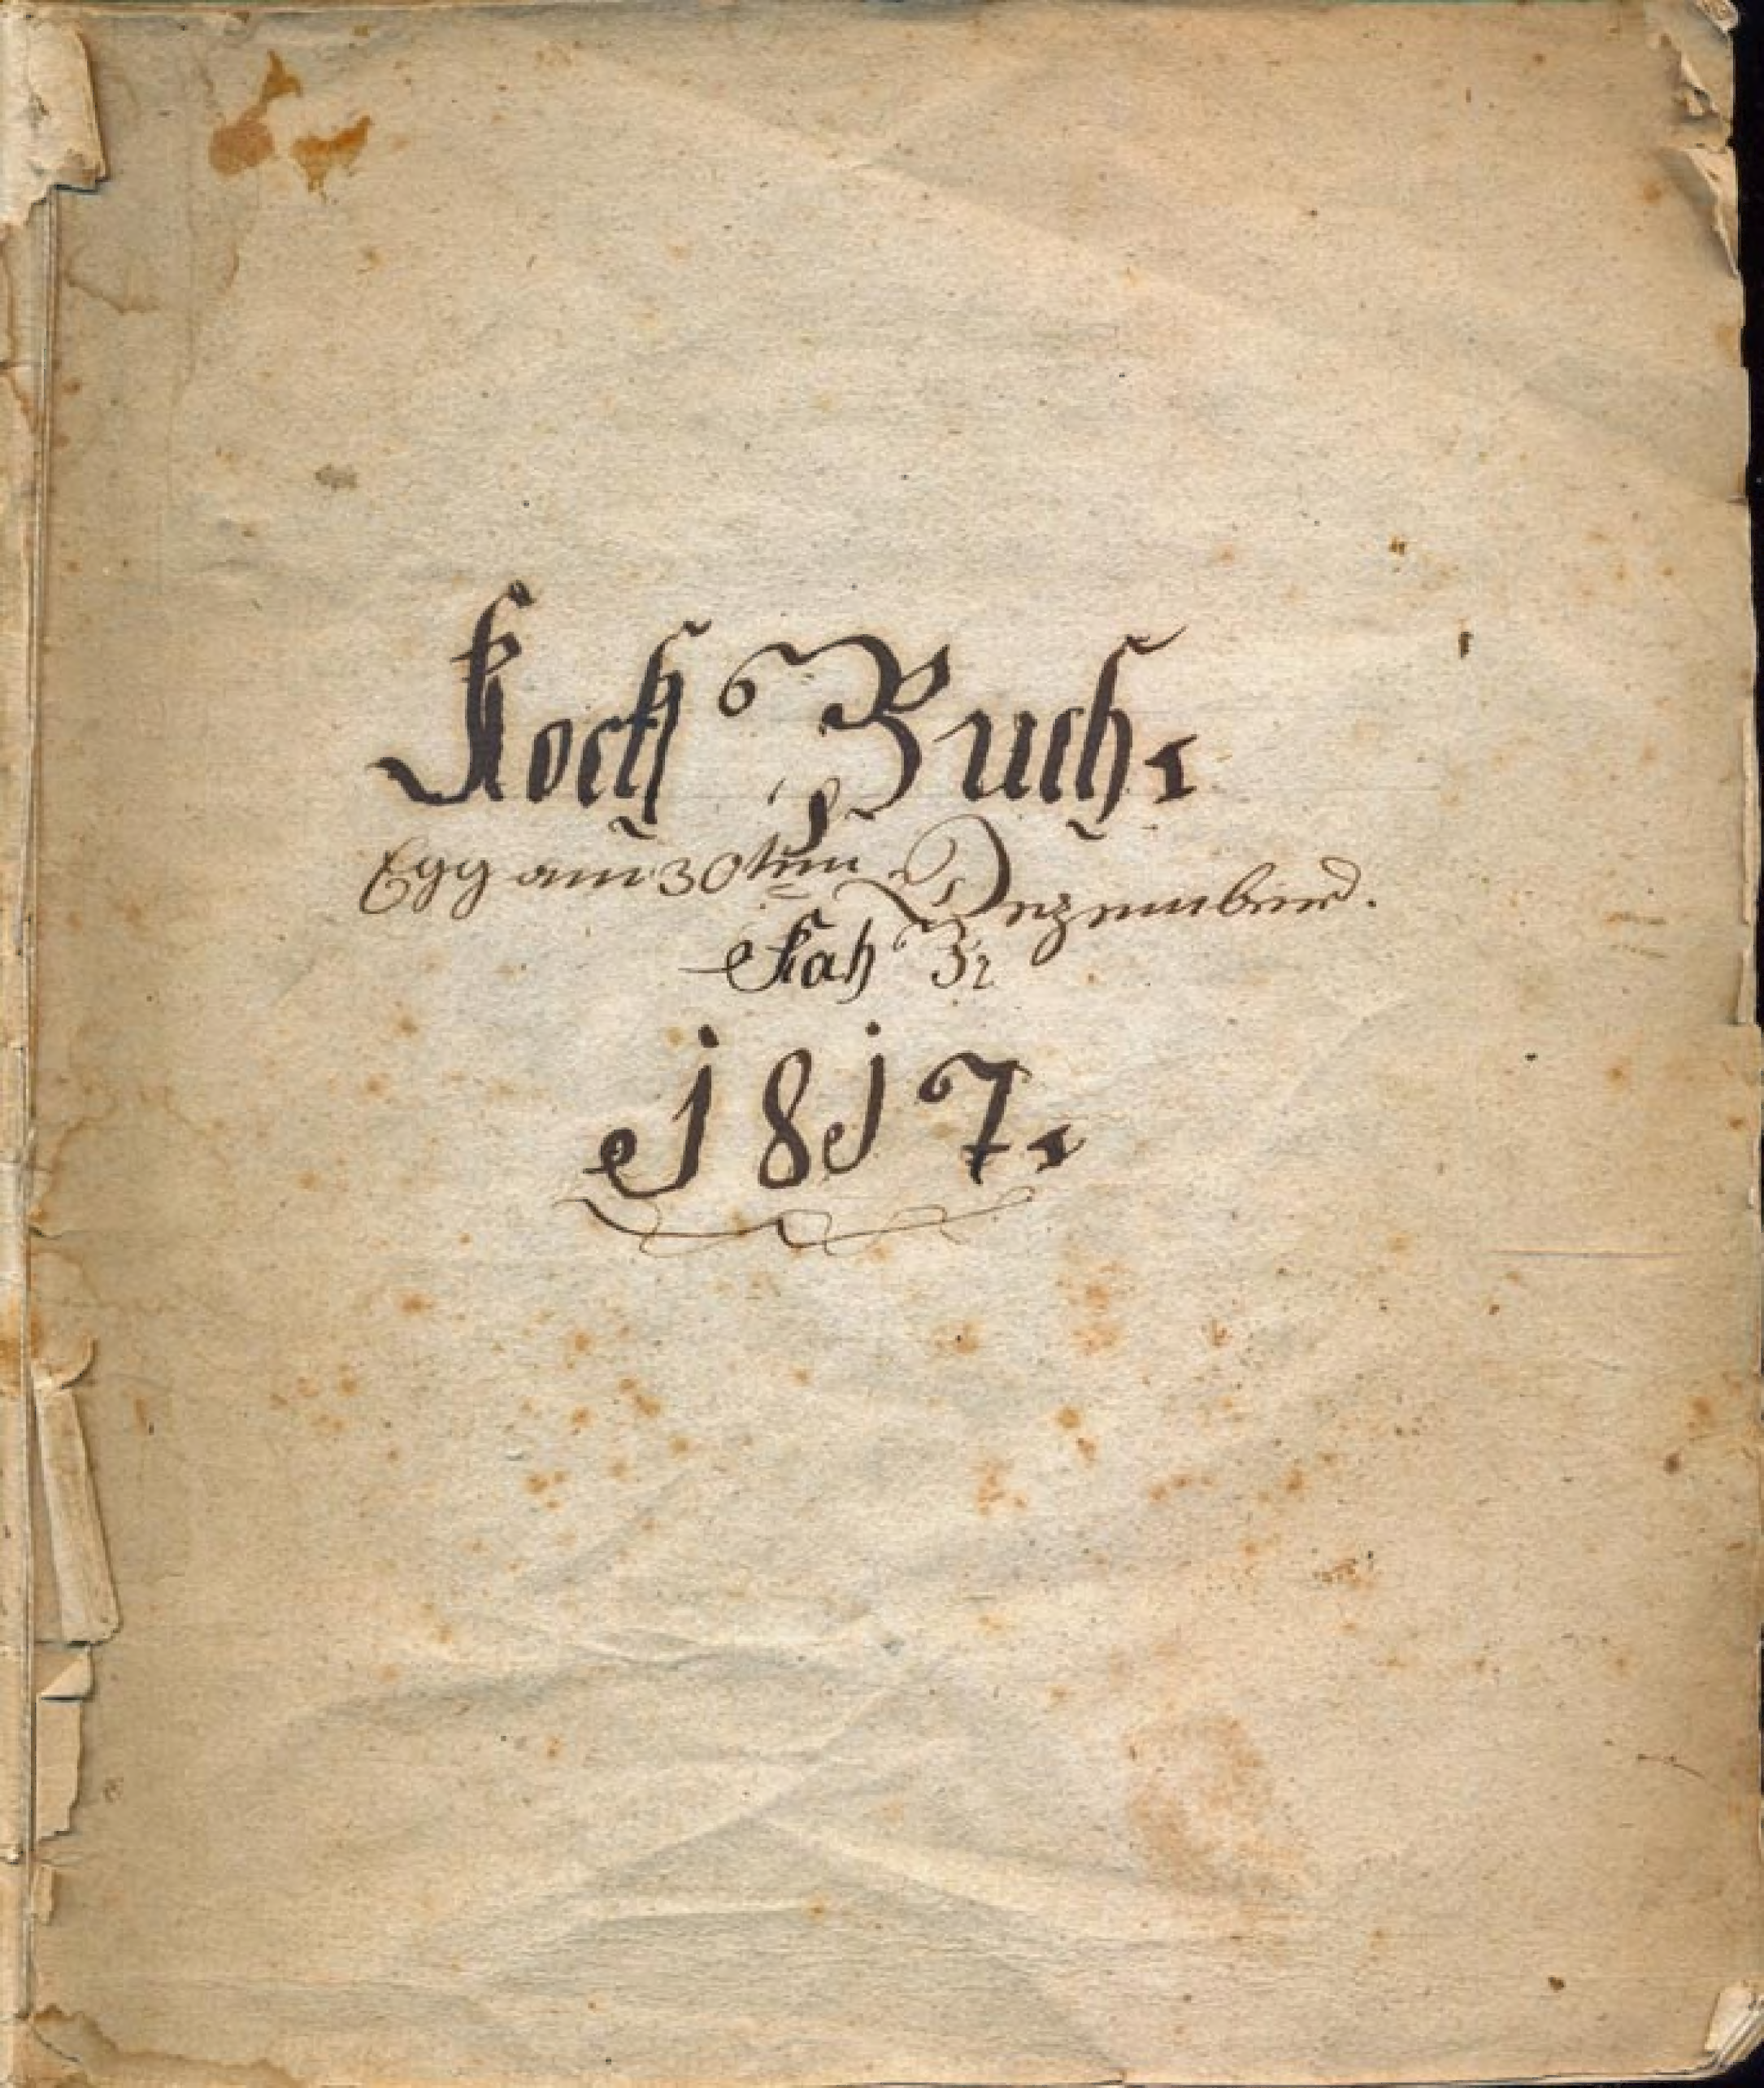 Koch Buch.
Egg am 30ten Dezember.
1817.